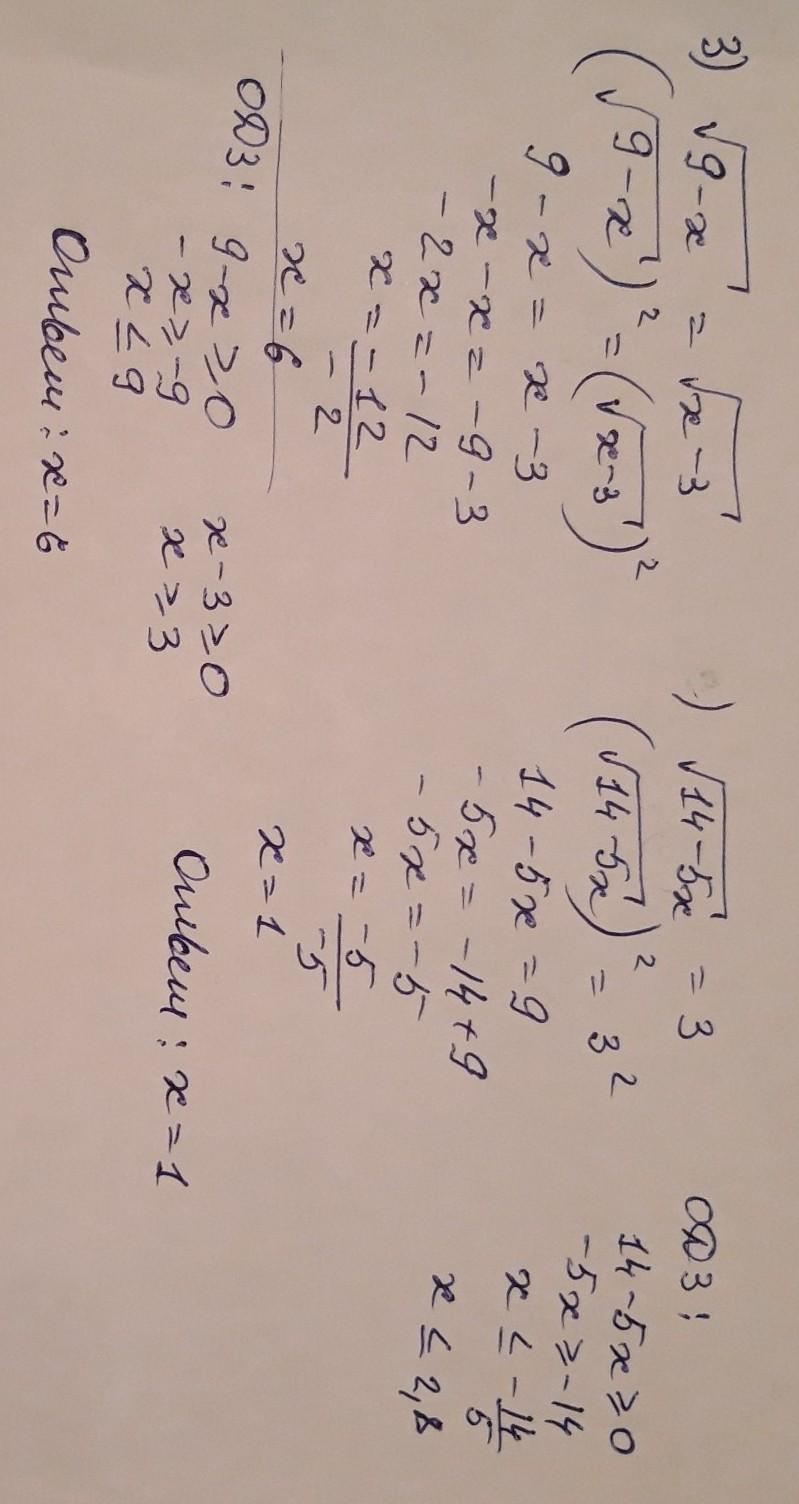 3) √9-x = √x-3
(√9-x)² = (√x-3)²
9 - x = x - 3
-x - x = -9 - 3
-2x = -12
x = -12/-2
x = 6
ОДЗ: 9-x ≥ 0
-x ≥ -9
x ≤ 9
x - 3 ≥ 0
x ≥ 3
Ответ: x = 6
) √14-5x = 3
(√14-5x)² = 3²
14 - 5x = 9
-5x = -14 + 9
-5x = -5
x = -5/-5
x = 1
Ответ: x = 1
ОДЗ:
14-5x ≥ 0
-5x ≥ -14
x ≤ -14/5
x ≤ 2,8